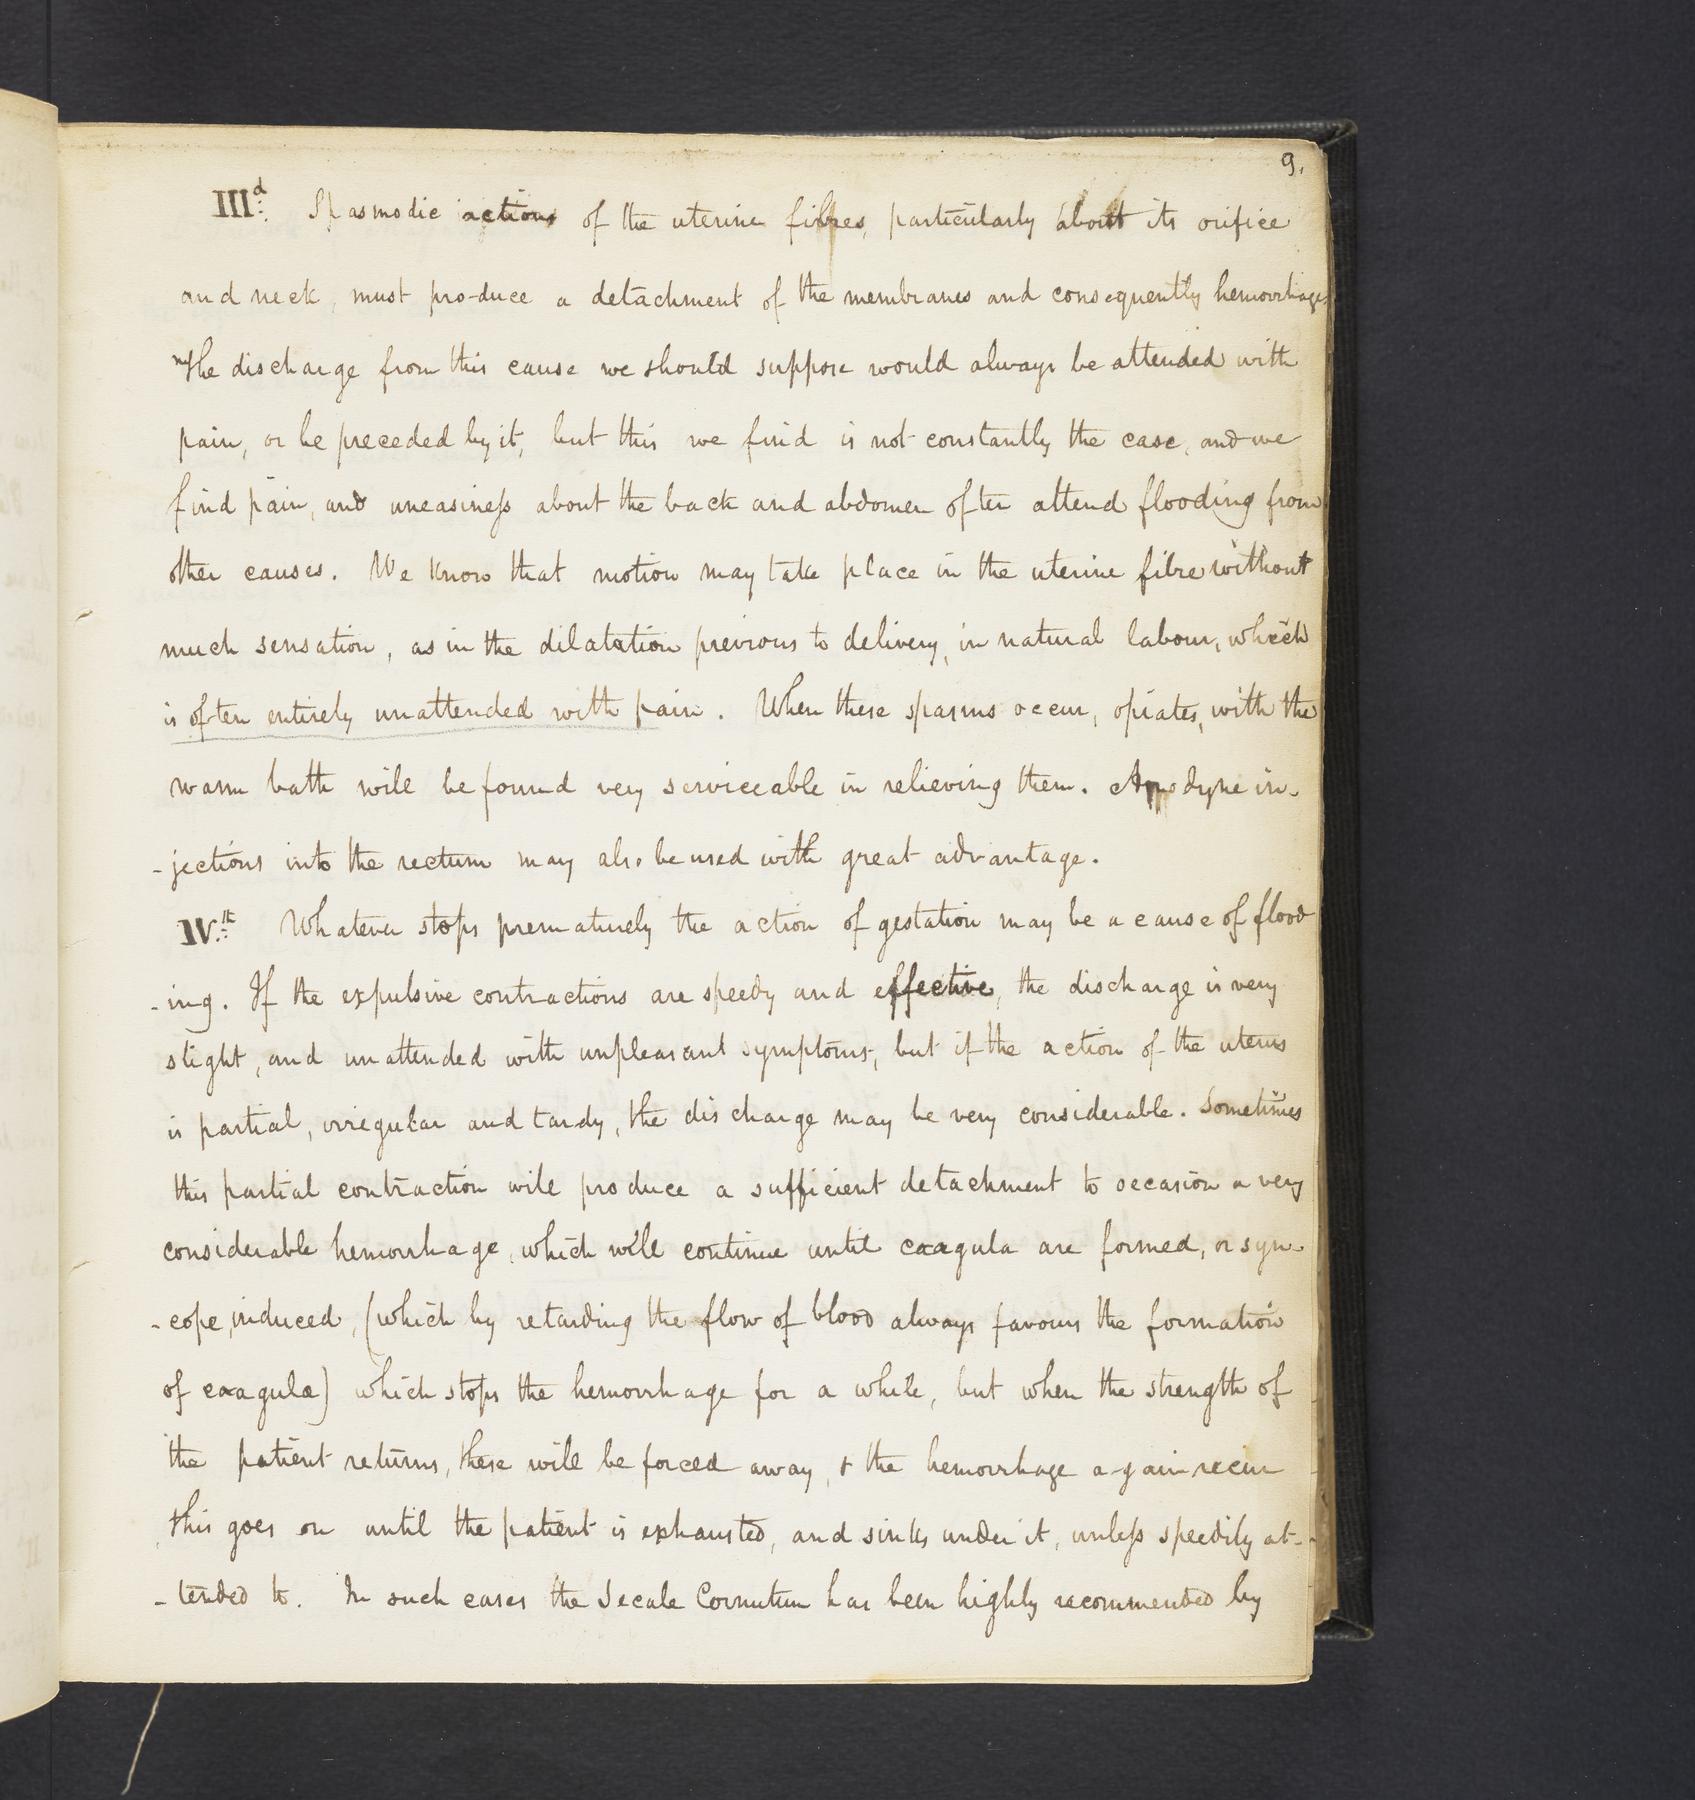 9.
IIId. Spasmodic actions of the uterine fibres, particularly about its orifice
and neck, must pro-duce a detachment of the membranes and consequently hemorrhage.
The discharge from this cause we should suppose would always be attended with
pain, or be preceded by it, but this we find is not constantly the case, and we
find pain, and uneasiness about the back and abdomen often attend flooding from
other causes. We know that motion may take place in the uterine fibre without
much sensation, as in the dilatation previous to delivery, in natural labour, which
is often entirely unattended with pain. When these spasms occur, opiates, with the
warm bath will be found very serviceable in relieving them. Anodyne in-
-jections into the rectum may also be used with great advantage.
IV.th Whatever stops prematurely the action of gestation may be a cause of flood
-ing. If the expulsive contractions are speedy and effective, the discharge is very
slight, and unattended with unpleasant symptoms, but if the action of the uterus
is partial, irregular and tardy, the discharge may be very considerable. Sometimes
this partial contraction will produce a sufficient detachment to occasion a very
considerable hemorrhage, which will continue until coagula are formed, or syn-
-cope, induced, (which by retarding the flow of blood always favours the formation
of coagula) which stops the hemorrhage for a while, but when the strength of
the patient returns, these will be forced away, & the hemorrhage a-gain recur
this goes on until the patient is exhausted, and sinks under it, unless speedily at-
-tended to. In such cases the Secale Cornutum has been highly recommended by